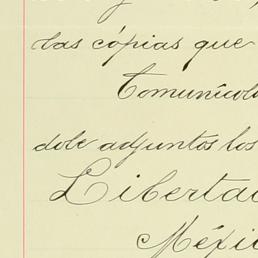 las cópias que
Comunícolo
dole adjuntos los
Libertad
Méxi